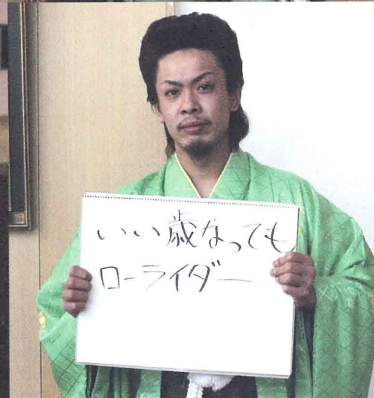 いい歳なっても
ローライダー